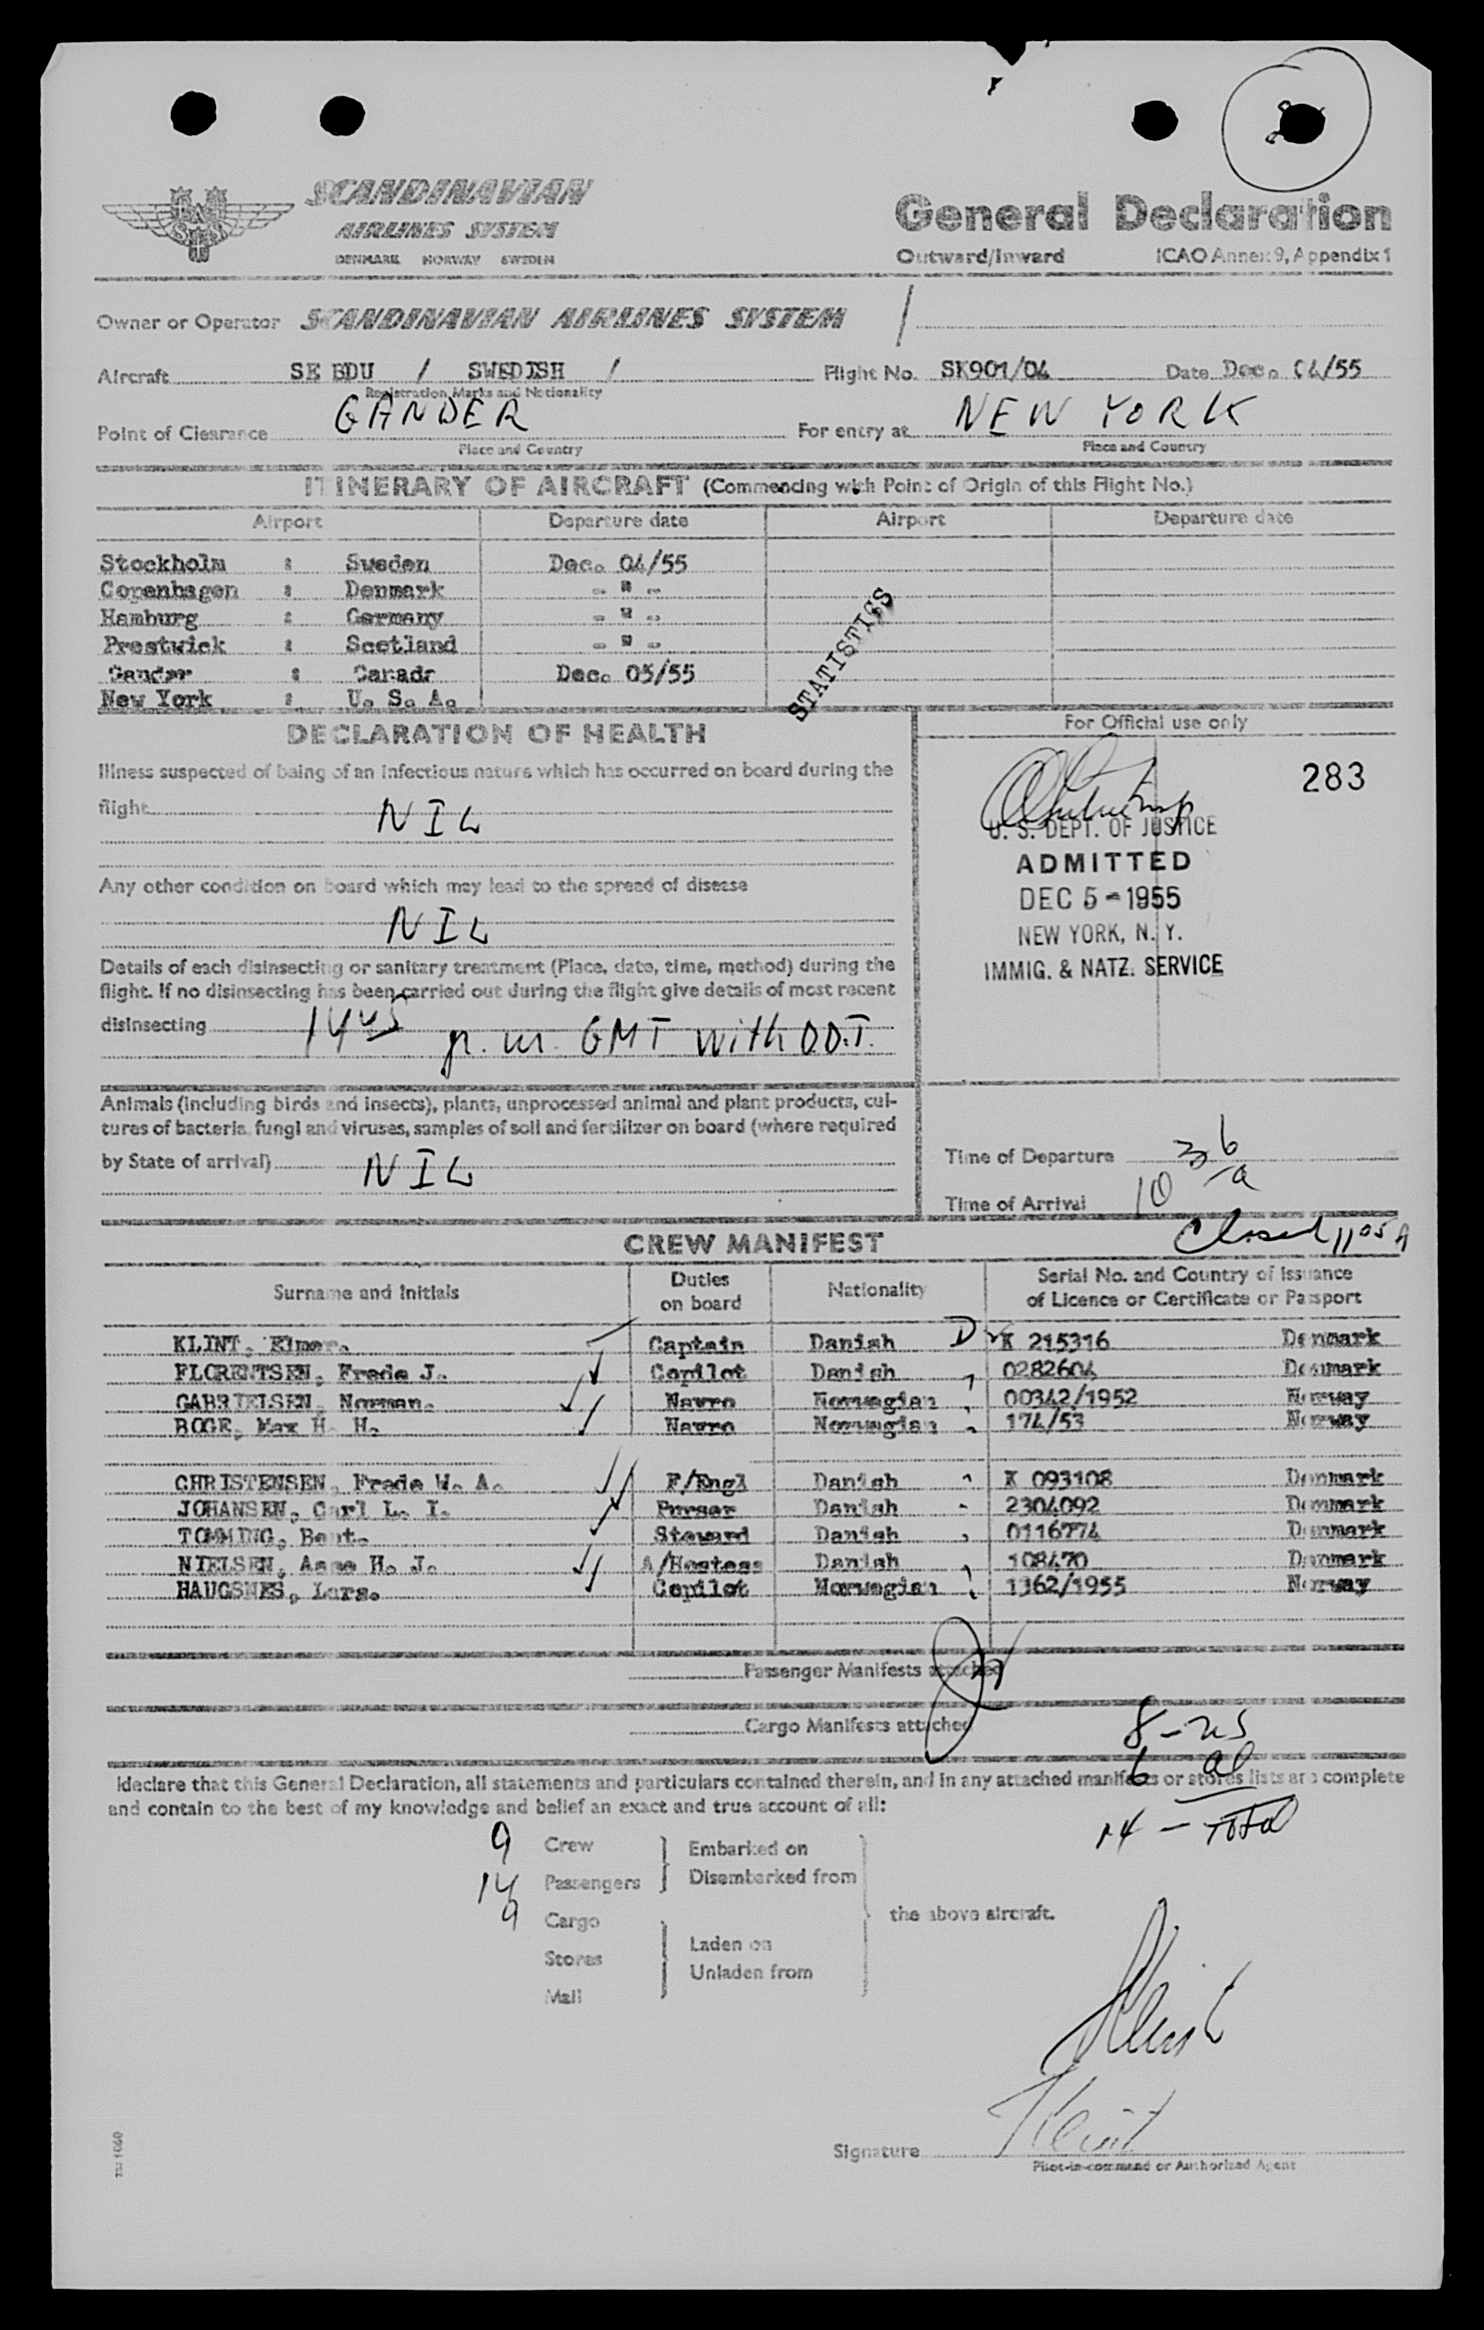 SCANDINAVIAN
AIRLINES SYSTEM
DENMARK NORWAY SWEDEN
General Declaration
Outward/Inward ICAO Annex 9, Appendix 1
Owner or Operator SCANDINAVIAN AIRLINES SYSTEM /
Aircraft SE BDU / SWEDISH / Flight No. SK901/04 Date Dec. 04/55
Registration Marks and Nationality
Point of Clearance GANDER For entry at NEW YORK
Place and Country Place and Country
ITINERARY OF AIRCRAFT (Commencing with Point of Origin of this Flight No.)
Airport Departure date Airport Departure date
Stockholm : Sweden Dec. 04/55
Copenhagen : Denmark - " -
Hamburg : Germany - " -
Prestwick : Scotland - " -
Gander : Canada Dec. 05/55
New York : U. S. A.
STATISTICS
DECLARATION OF HEALTH
Illness suspected of being of an infectious nature which has occurred on board during the
flight NIL
Any other condition on board which may lead to the spread of disease
NIL
Details of each disinsecting or sanitary treatment (Place, date, time, method) during the
flight. If no disinsecting has been carried out during the flight give details of most recent
disinsecting 1445 p.m. GMT with D.D.T.
Animals (including birds and insects), plants, unprocessed animal and plant products, cul-
tures of bacteria, fungi and viruses, samples of soil and fertilizer on board (where required
by State of arrival) NIL
For Official use only
283
U. S. DEPT. OF JUSTICE
ADMITTED
DEC 5 - 1955
NEW YORK, N. Y.
IMMIG. & NATZ. SERVICE
Time of Departure
Time of Arrival 10 36 a
Closed 1105 A
CREW MANIFEST
Surname and Initials Duties on board Nationality Serial No. and Country of Issuance of Licence or Certificate or Passport
KLINT, Elmer. Captain Danish D K 215316 Denmark
FLORENTSEN, Frede J. Copilot Danish 0282604 Denmark
GABRIELSEN, Norman. Navro Norwegian 00342/1952 Norway
BOGE, Max H. H. Navro Norwegian 174/53 Norway
CHRISTENSEN, Frede W. A. F/Engl Danish K 093108 Denmark
JOHANSEN, Carl L. I. Purser Danish 2304092 Denmark
TOMMING, Bent. Steward Danish 0116774 Denmark
NIELSEN, Aase H. J. A/Hostess Danish 108470 Denmark
HAUGSNES, Lars. Copilot Norwegian 1362/1955 Norway
Passenger Manifests attached
Cargo Manifests attached
8 - us
6 al
14 - Total
I declare that this General Declaration, all statements and particulars contained therein, and in any attached manifests or stores lists are complete
and contain to the best of my knowledge and belief an exact and true account of all:
9 Crew Embarked on
14 Passengers Disembarked from
9 Cargo
the above aircraft.
Stores Laden on
Unladen from
Mail
Klint
Signature Klint
Pilot-in-command or Authorized Agent